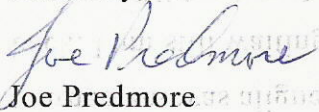 Joe Predmore
Joe Predmore